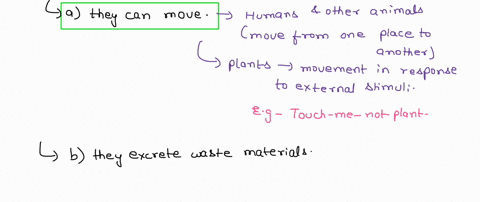 a) they can move. → Humans & other animals
(move from one place to
another)
plants → movement in response
to external stimuli.
E.g - Touch-me-not plant.
b) they excrete waste materials.